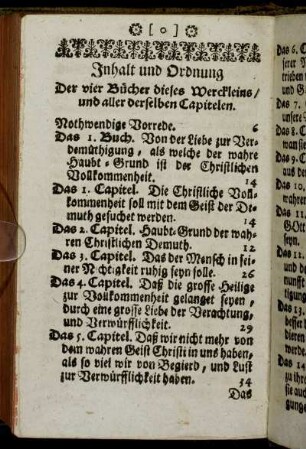 [ o ]
Inhalt und Ordnung
Der vier Bücher dieses Werckleins/
und aller derselben Capitelen.
Nothwendige Vorrede. 6
Das 1. Buch. Von der Liebe zur Ver-
demüthigung, als welche der wahre
Haubt-Grund ist der Christlichen
Vollkommenheit. 14
Das 1. Capitel. Die Christliche Voll-
kommenheit soll mit dem Geist der De-
muth gesuchet werden. 14
Das 2. Capitel. Haubt-Grund der wah-
ren Christlichen Demuth. 12
Das 3. Capitel. Das der Mensch in sei-
ner Nichtigkeit ruhig seyn solle. 26
Das 4. Capitel. Daß die grosse Heilige
zur Vollkommenheit gelanget seyen,
durch eine grosse Liebe der Verachtung,
und Verwürfflichkeit. 29
Das 5. Capitel. Daß wir nicht mehr von
dem wahren Geist Christi in uns haben,
als so viel wir von Begierd, und Lust
zur Verwürfflichkeit haben. 34
Das